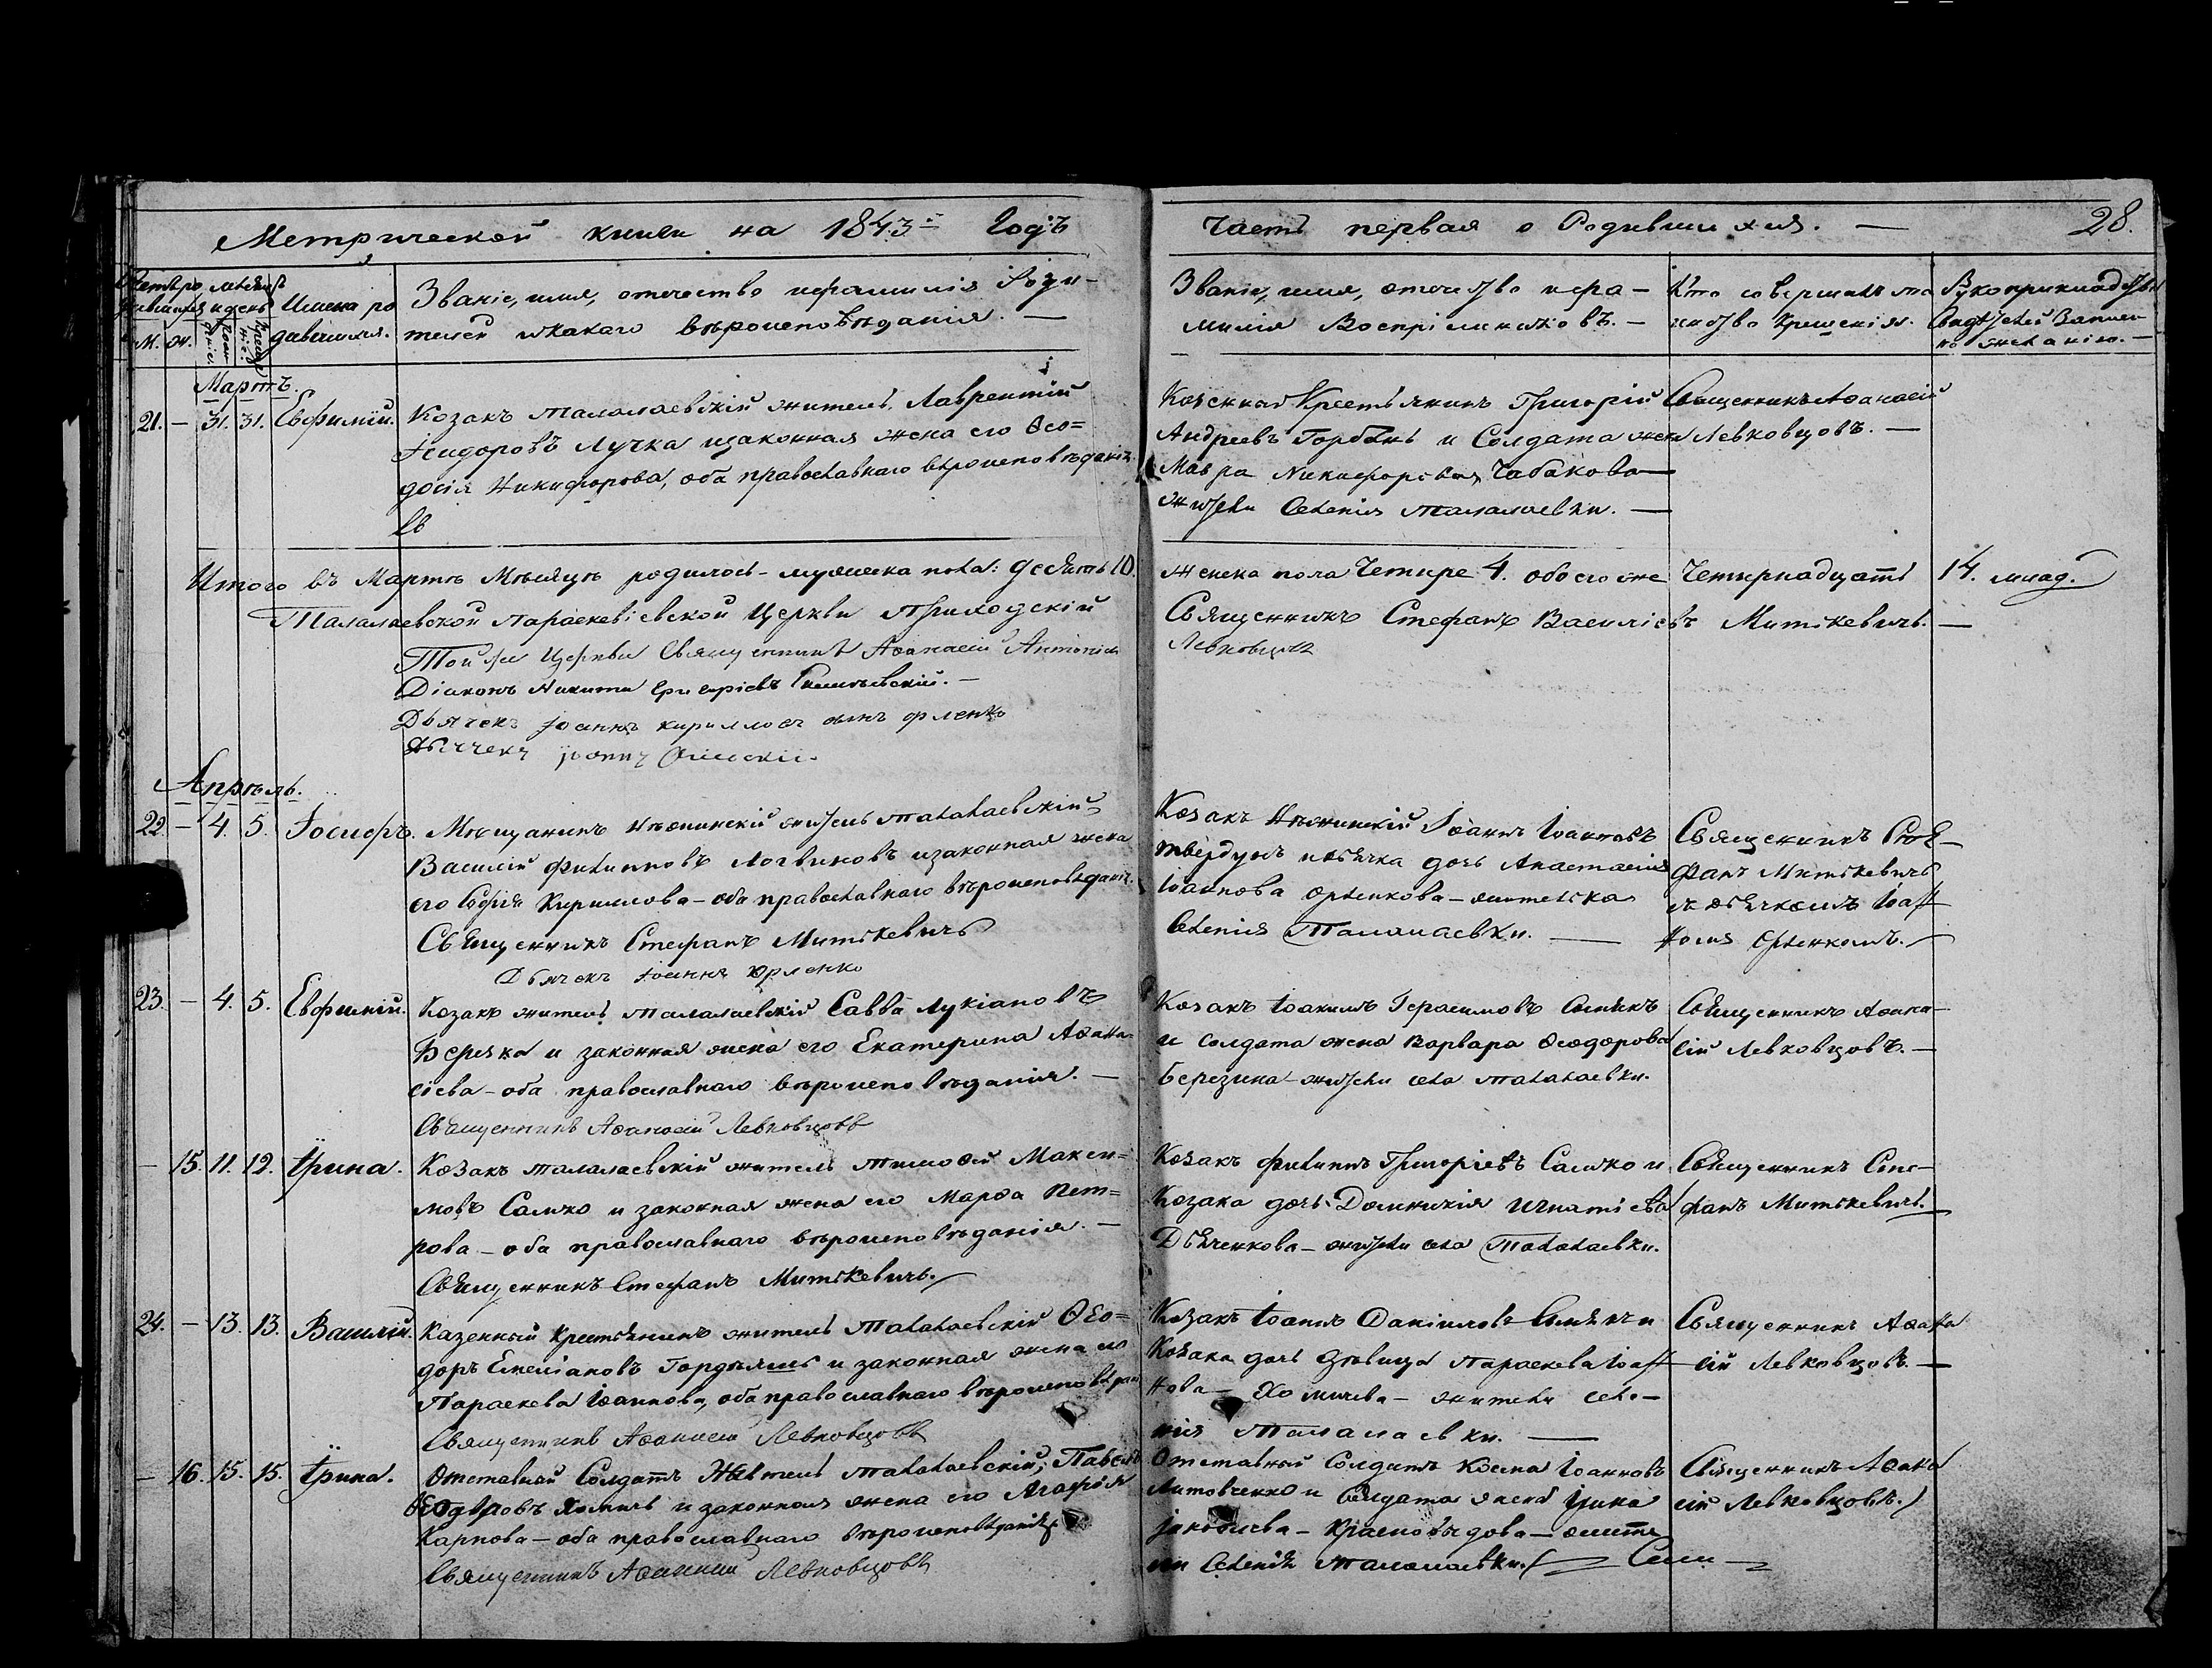 Метрической книги на 1843й Годъ
часть первая о Родившихся. — 28.
Счетъ ро дившихся
М. Ж.
мѣсяцъ и день
рожденіе. крещеніе.
Имена родившихся.
Званіе, имя, отчество и фамилія Роди-
телей и какого вѣроисповѣданія. —
Званіе, имя, отечество и фа-
милія Воспріемниковъ. —
Кто совершалъ та
инство Крещенія.
Рукоприкладство
Свидѣтелей Записи
по желанію. —
Мартъ.
21. — 31. 31. Евфимій.
Козакъ талалаевскій житель Лаврентій
Ѳеодоровъ Лучка и законная жена его Ѳео=
досія Никифорова, оба православнаго вѣроисповѣданія.
Св
Казенный Крестьянинъ Григорій
Андреевъ Горбань и Солдата жена
Мавра Никифорова Чабакова
жители Селенія Талалаевки. —
Священникъ Аѳанасій
Левковцовъ. —
Итого въ Мартѣ Мѣсяцѣ родилось - мужеска пола: десять 10.
женска пола Четыре 4. обоего же Четырнадцать 14. млад.
Талалаевской Параскевіевской Церкви Приходскій
Священникъ Стефанъ Василіевъ Митькевичъ. —
Той же Церкви Священникъ Аѳанасій Антоніевъ
Левковцовъ
Діаконъ Никита
Дьячекъ Іоаннъ Кирилловъ сынъ Орленко
Дьячекъ Іоаннъ
Апрѣль.
22 — 4. 5. Іосифъ.
Мѣщанинъ Нѣжинскій житель талалаевскій
Василій Филипповъ Логвиновъ и законная жена
его Софія Кириллова - оба православнаго вѣроисповѣданія.
Священникъ Стефанъ Митькевичъ
Дьячекъ Іоаннъ Орленко
Козакъ Нѣжинскій Іоаннъ Іоанновъ
Твердунъ и дьячка дочь Анастасія
Іоаннова Орленкова - жительска
Селенія Талалаевки. —
Священникъ Сте-
фанъ Митькевичъ
съ дьячкомъ Іоан
номъ Орленкомъ. —
23. — 4. 5. Евфимій.
Козакъ житель талалаевскій Савва Лукіановъ
Бережа и законная жена его Екатерина Аѳана-
сіева - оба православнаго вѣроисповѣданія. —
Священникъ Аѳанасій Левковцовъ
Козакъ Іоакимъ Герасимовъ
и солдата жена Варвара Ѳеодорова
Березина - жители села Талалаевки.
Священникъ Аѳана-
сій Левковцовъ. —
— 15. 11. 12. Ірина.
Козакъ талалаевскій житель Тимоѳей Макси-
мовъ Самко и законная жена его Марѳа Пет=
рова - оба православнаго вѣроисповѣданія. —
Священникъ Стефанъ Митькевичъ.
Козакъ Филиппъ Григоріевъ Самко и
Козака дочь Домникія Игнатіева
Дьяченкова - жители села Талалаевки.
Священникъ Сте-
фанъ Митькевичъ.
24. — 13. 13. Василій.
Казенный крестьянинъ житель талалаевскій Ѳео=
доръ Емеліановъ и законная жена его
Параскева Іоаннова, оба православнаго вѣроисповѣдан
Священникъ Аѳанасій Левковцовъ
Козакъ Іоаннъ Даніиловъ и
Козака дочь дѣвица Параскева Іоан
нова - Хомичева - жители селе-
нія Талалаевки. —
Священникъ Аѳана
сій Левковцовъ. —
— 16. 15. 15. Ірина.
Отставный Солдатъ Житель талалаевскій, Павелъ
Ѳеодоровъ Хомичъ и законная жена его Агафія
Карпова - оба православнаго вѣроисповѣданія
Священникъ Аѳанасій Левковцовъ
Отставный Солдатъ Косма Іоанновъ
Литовченко и Солдата жена Ірина
Іаковлева - Краснобѣдова - жите
ли Селенія Талалаевки.
Священникъ Аѳана
сій Левковцовъ.